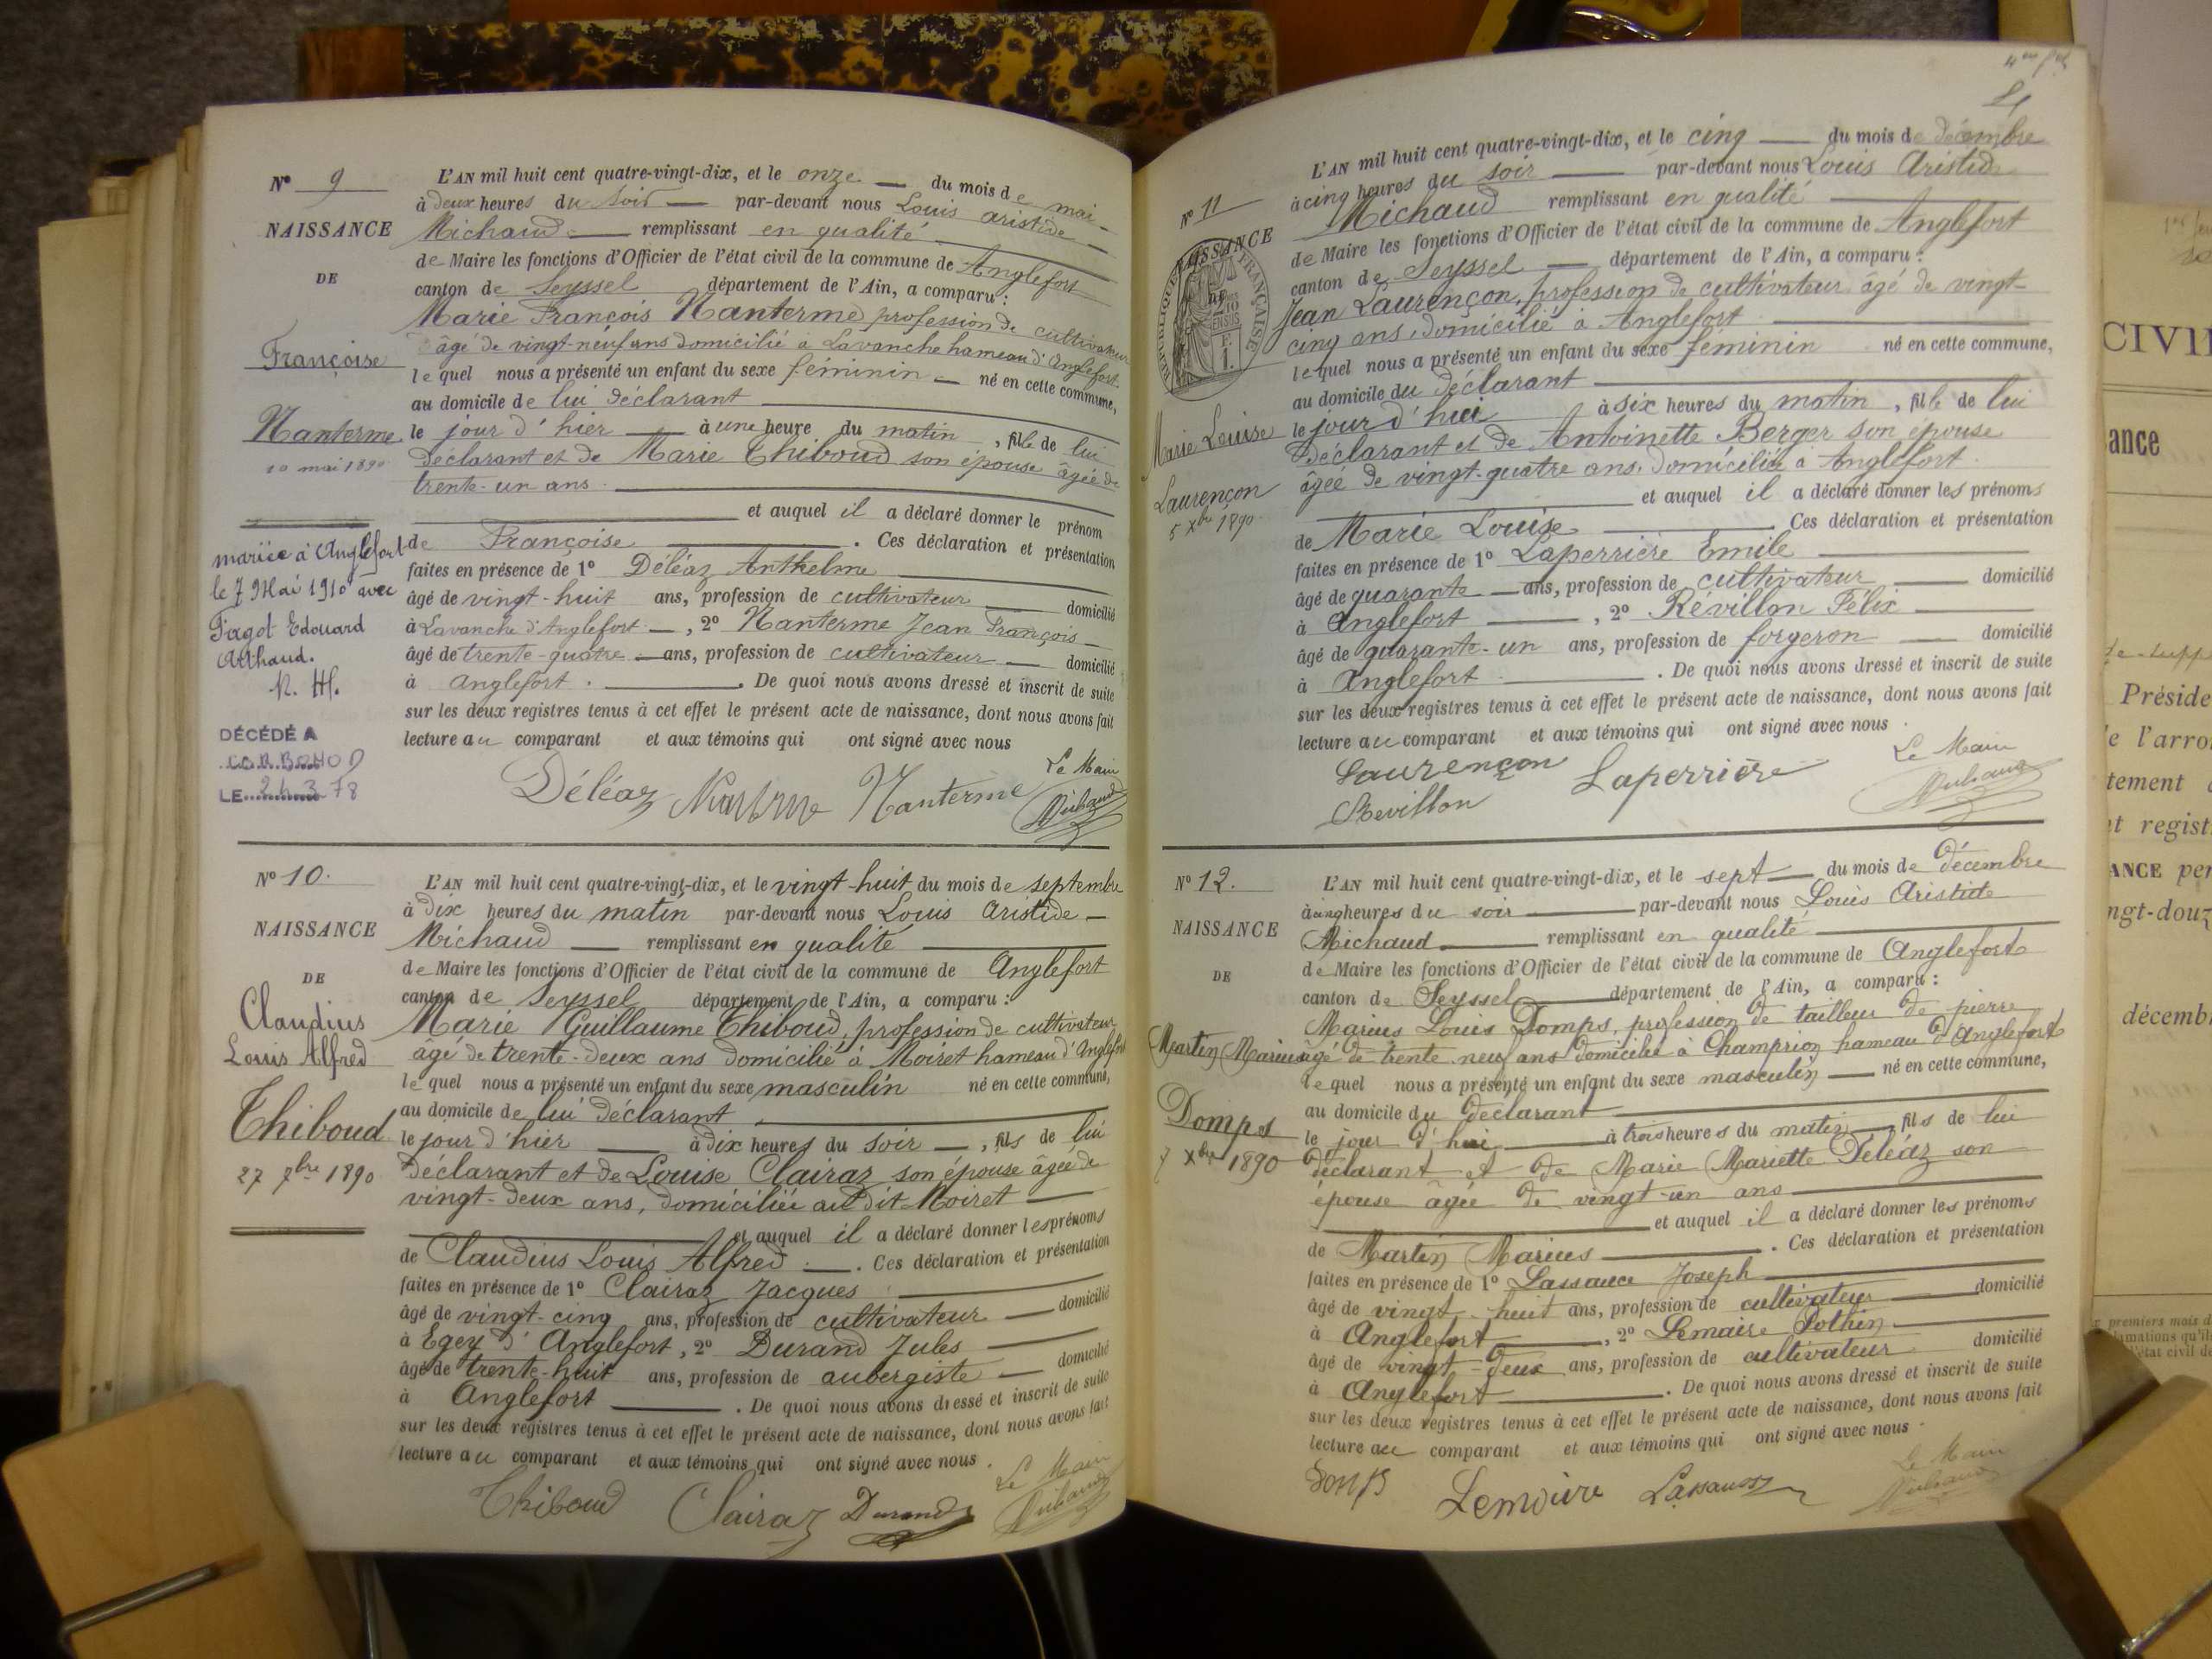 Nº 9
NAISSANCE
DE
Françoise
Nanterme
10 mai 1890
mariée à Anglefort
le 7 Mai 1910 avec
Pagot Edouard
Arthaud.
DÉCÉDÉ A
CORBONOD
LE 24 3 78
L'AN mil huit cent quatre-vingt-dix, et le onze du mois de mai
à deux heures du soir par-devant nous Louis aristide
Michaud remplissant en qualité
de Maire les fonctions d'Officier de l'état civil de la commune de Anglefort
canton de Seyssel département de l'Ain, a comparu :
Marie François Nanterme profession de cultivateur
âgé de vingt-neuf ans domicilié à Lavanche hameau d'Anglefort
lequel nous a présenté un enfant du sexe féminin né en cette commune,
au domicile de lui déclarant
le jour d'hier à une heure du matin, fille de lui
déclarant et de Marie Thiboud son épouse âgée de
trente-un ans.
et auquel il a déclaré donner le prénom
de Françoise. Ces déclaration et présentation
faites en présence de 1º Déléaz Anthelme
âgé de vingt-huit ans, profession de cultivateur domicilié
à Lavanche d'Anglefort, 2º Nanterme Jean François
âgé de trente-quatre ans, profession de cultivateur domicilié
à Anglefort. De quoi nous avons dressé et inscrit de suite
sur les deux registres tenus à cet effet le présent acte de naissance, dont nous avons fait
lecture au comparant et aux témoins qui ont signé avec nous
Le Maire
Déléaz Nanterme Nanterme Michaud
Nº 10.
NAISSANCE
DE
Claudius
Louis Alfred
Thiboud
27 7bre 1890
L'AN mil huit cent quatre-vingt-dix, et le vingt-huit du mois de septembre
à dix heures du matin par-devant nous Louis Aristide
Michaud remplissant en qualité
de Maire les fonctions d'Officier de l'état civil de la commune de Anglefort
canton de Seyssel département de l'Ain, a comparu :
Marie Guillaume Thiboud, profession de cultivateur
âgé de trente-deux ans domicilié à Moiret hameau d'Anglefort
lequel nous a présenté un enfant du sexe masculin né en cette commune,
au domicile de lui déclarant
le jour d'hier à dix heures du soir, fils de lui
déclarant et de Louise Clairaz son épouse âgée de
vingt-deux ans, domiciliée au dit Moiret
et auquel il a déclaré donner les prénoms
de Claudius Louis Alfred. Ces déclaration et présentation
faites en présence de 1º Clairaz Jacques
âgé de vingt-cinq ans, profession de cultivateur domicilié
à Egey d'Anglefort, 2º Durand Jules
âgé de trente-huit ans, profession de aubergiste domicilié
à Anglefort. De quoi nous avons dressé et inscrit de suite
sur les deux registres tenus à cet effet le présent acte de naissance, dont nous avons fait
lecture au comparant et aux témoins qui ont signé avec nous.
Le Maire
Thiboud Clairaz Durand Michaud
Nº 11
NAISSANCE
RÉPUBLIQUE FRANÇAISE
Marie Louise
Laurençon
5 Xbre 1890.
L'AN mil huit cent quatre-vingt-dix, et le cinq du mois de décembre
à cinq heures du soir par-devant nous Louis Aristide
Michaud remplissant en qualité
de Maire les fonctions d'Officier de l'état civil de la commune de Anglefort
canton de Seyssel département de l'Ain, a comparu :
Jean Laurençon, profession de cultivateur âgé de vingt-
cinq ans, domicilié à Anglefort
lequel nous a présenté un enfant du sexe féminin né en cette commune,
au domicile du déclarant
le jour d'hui à six heures du matin, fille de lui
déclarant et de Antoinette Berger son épouse
âgée de vingt-quatre ans, domiciliée à Anglefort.
et auquel il a déclaré donner les prénoms
de Marie Louise. Ces déclaration et présentation
faites en présence de 1º Laperrière Emile
âgé de quarante ans, profession de cultivateur domicilié
à Anglefort, 2º Révillon Félix
âgé de quarante-un ans, profession de forgeron domicilié
à Anglefort. De quoi nous avons dressé et inscrit de suite
sur les deux registres tenus à cet effet le présent acte de naissance, dont nous avons fait
lecture au comparant et aux témoins qui ont signé avec nous.
Le Maire
Laurençon Laperrière Michaud
Revillon
Nº 12.
NAISSANCE
DE
Martin Marius
Domps
7 Xbre 1890
L'AN mil huit cent quatre-vingt-dix, et le sept du mois de décembre
à cinq heures du soir par-devant nous Louis Aristide
Michaud remplissant en qualité
de Maire les fonctions d'Officier de l'état civil de la commune de Anglefort
canton de Seyssel département de l'Ain, a comparu :
Marius Louis Domps, profession de tailleur de pierre
âgé de trente-neuf ans domicilié à Champrion hameau d'Anglefort
lequel nous a présenté un enfant du sexe masculin né en cette commune,
au domicile du déclarant
le jour d'hui à trois heures du matin, fils de lui
déclarant et de Marie Mariette Déléaz son
épouse âgée de vingt-un ans
et auquel il a déclaré donner les prénoms
de Martin Marius. Ces déclaration et présentation
faites en présence de 1º Lassauce Joseph
âgé de vingt-huit ans, profession de cultivateur domicilié
à Anglefort, 2º Lemaire Pothin
âgé de vingt-deux ans, profession de cultivateur domicilié
à Anglefort. De quoi nous avons dressé et inscrit de suite
sur les deux registres tenus à cet effet le présent acte de naissance, dont nous avons fait
lecture au comparant et aux témoins qui ont signé avec nous.
Le Maire
Domps Lemoire Lassauce Michaud
CIVIL
ance
Préside
e l'arro
tement
et regist
ANCE per
ngt-douz
décemb
premiers mois d
lamations qu'il
l'état civil de